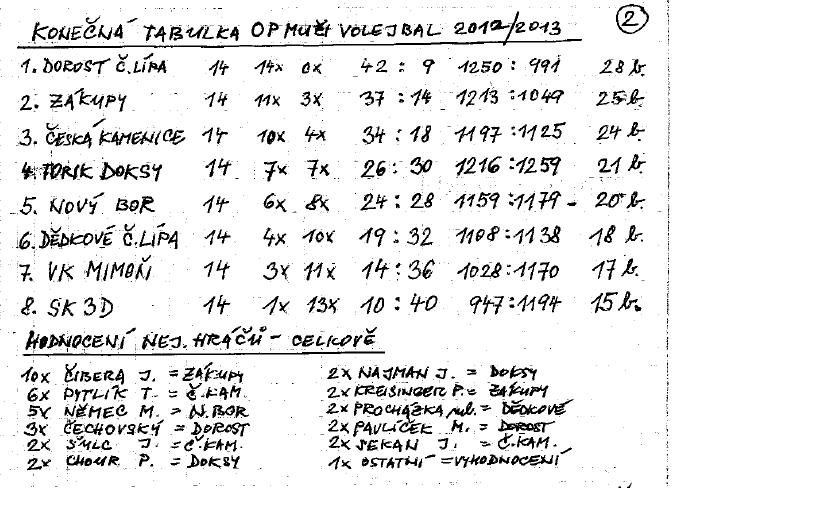 2
KONEČNÁ TABULKA OP MUŽI VOLEJBAL 2012/2013
1. DOROST Č.LÍPA 14 14x 0x 42 : 9 1250 : 991 28 b.
2. ZÁKUPY 14 11x 3x 37 : 14 1213 : 1049 25 b.
3. ČESKÁ KAMENICE 14 10x 4x 34 : 18 1197 : 1125 24 b.
4. TORIK DOKSY 14 7x 7x 26 : 30 1216 : 1259 21 b.
5. NOVÝ BOR 14 6x 8x 24 : 28 1159 : 1179 - 20 b.
6. DĚDKOVÉ Č.LÍPA 14 4x 10x 19 : 32 1108 : 1138 18 b.
7. VK MIMOŇ 14 3x 11x 14 : 36 1028 : 1170 17 b.
8. SK 3D 14 1x 13x 10 : 40 947 : 1194 15 b.
HODNOCENÍ NEJ. HRÁČŮ - CELKOVĚ
10x ČIBERA J. = ZÁKUPY 2x NAJMAN J. = DOKSY
6x PYTLÍK T. = Č.KAM. 2x KREISINGER P. = ZÁKUPY
5x NĚMEC M. = N.BOR 2x PROCHÁZKA ml. = DĚDKOVÉ
3x ČECHOVSKÝ = DOROST 2x PAVLÍČEK M. = DOROST
2x ŠULC J. = Č.KAM. 2x SEKAN J. = Č.KAM.
2x CHOUR P. = DOKSY 1x OSTATNÍ = VYHODNOCENÍ